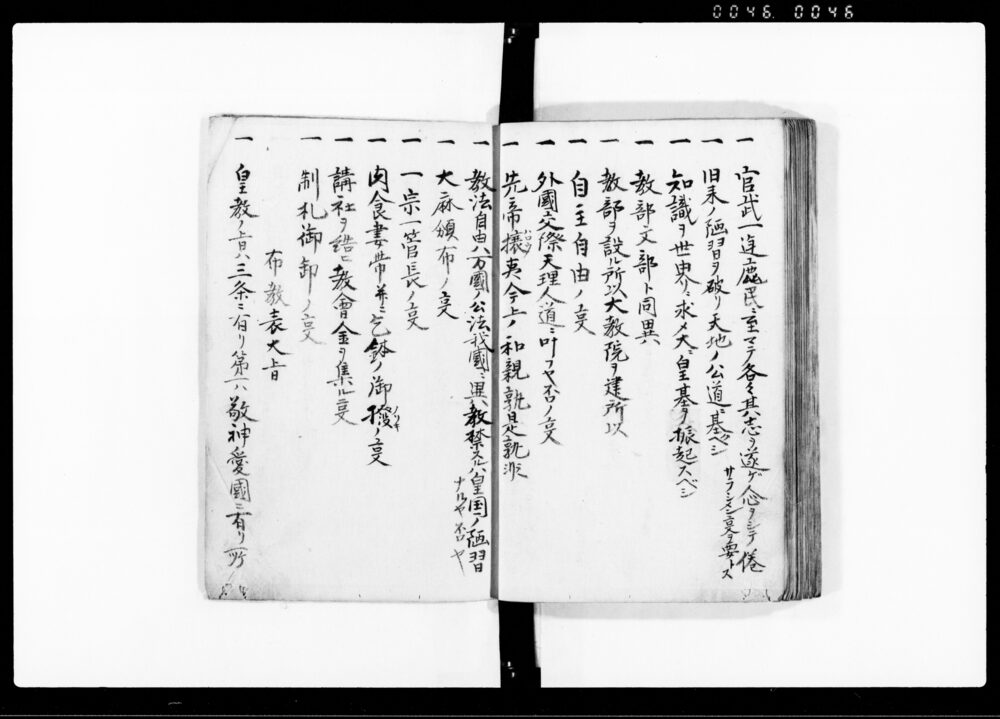 0046. 0046
一 官武一途庶民ニ至マテ各々其志ヲ遂ゲ人心ヲシテ倦
サラシメン⿱ヲ要トス
一 旧来ノ陋習ヲ破リ天地ノ公道ニ基ベシ
一 知識ヲ世界ニ求メ大ニ皇基ヲ振起スベシ
一 教部文部ト同異
一 教部ヲ設ル所以大教院ヲ建所以
一 自主自由ノ𡱈
一 外國交際天理人道ニ叶フヤ否ノ𡱈
一 先帝攘夷今上ノ和親孰是孰非
一 教法自由ハ万國ノ公法我國ニ異教禁スルハ皇国ノ陋習
ナルヤ否ヤ
一 大麻頒布ノ𡱈
一 一宗一管長ノ𡱈
一 肉食妻帯并ニ乞鉢ノ御
一 講社ヲ結ヒ教會金ヲ集ル𡱈
一 制札御卸ノ𡱈
布教表大旨
一 皇教ノ旨ハ三条ニ有リ第一ハ敬神愛國ニ有リ